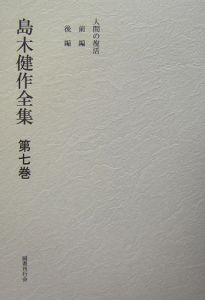 島木健作全集 第七巻
人間の復活
前編
後編
国書刊行会